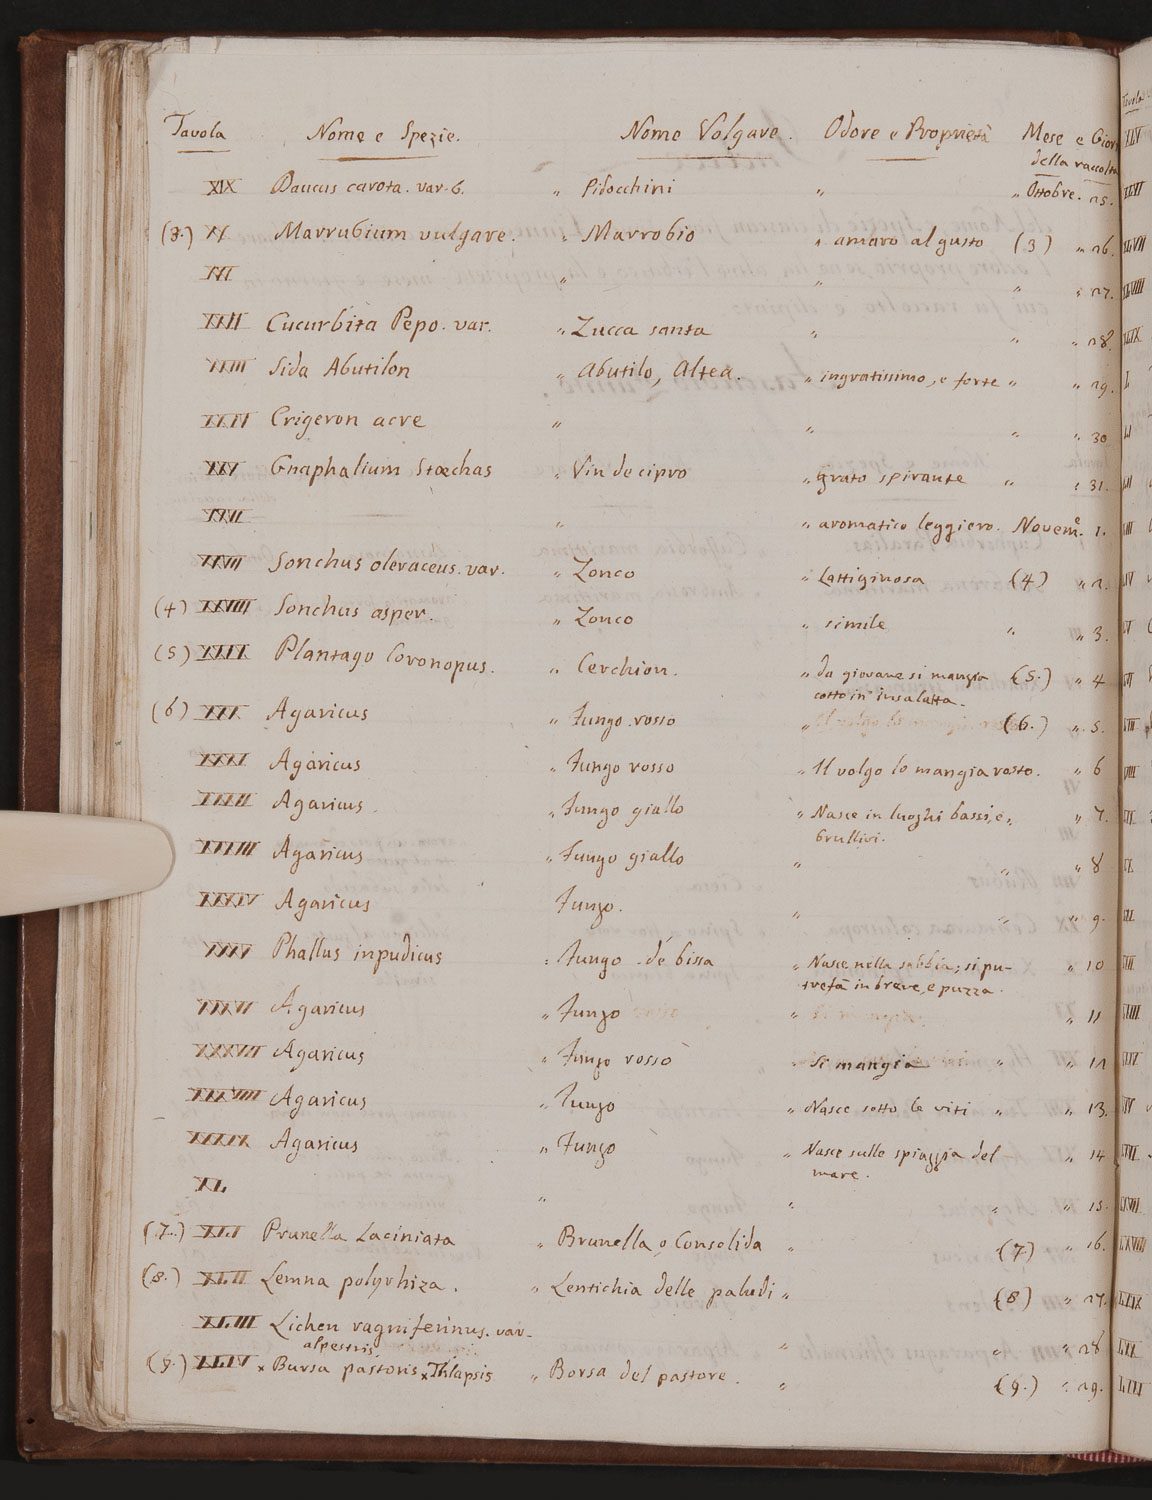 Tavola Nome e Spezie. Nome Volgare. Odore e Proprietà Mese e Gior
della raccolta
XIX Daucus carota. var. 6. " Pidocchini " " Ottobre. 25.
(3.) XX Marrubium vulgare. " Marrobio " amaro al gusto (3) " 26.
XXI " " " " 27.
XXII Cucurbita Pepo. var. " Zucca santa " " " 28.
XXIII Sida Abutilon " Abutilo, Altea. " ingratissimo, e forte " " 29.
XXIV Erigeron acre " " " " 30
XXV Gnaphalium Stœchas " Vin de cipro " grato spirante " " 31.
XXVI " " aromatico leggiero. Novem.e 1.
XXVII Sonchus oleraceus. var. " Zonco " Lattiginosa (4) " 2.
(4) XXVIII Sonchus asper. " Zonco " simile " " 3.
(5) XXIX Plantago Coronopus. " Cerchion. " da giovane si mangia (5.) " 4
cotto in insalatta.
(6) XXX Agaricus " Fungo rosso " (6.) " 5.
XXXI Agaricus " Fungo rosso " Il volgo lo mangia rosto. " 6
XXXII Agaricus. " Fungo giallo " Nasce in luoghi bassi, e " " 7.
brullivi.
XXXIII Agaricus " Fungo giallo " " " 8
XXXIV Agaricus Fungo. " " " 9.
XXXV Phallus inpudicus " Fungo de bissa " Nasce nella sabbia; si pu-
trefà in breve, e puzza. " 10
XXXVI Agaricus " Fungo " " 11
XXXVII Agaricus " Fungo rosso " Si mangia " " 12
XXXVIII Agaricus " Fungo " Nasce sotto le viti " " 13.
XXXIX Agaricus " Fungo " Nasce sulle spiaggia del " 14
mare.
XL " " " " 15.
(7.) XLI Prunella Laciniata " Brunella, o Consolida " (7) " 16.
(8.) XLII Lemna polyrhiza. " Lentichia delle paludi " (8) " 17.
XLIII Lichen ragniferinus. var. " " " 18
alpestris
(9.) XLIV x Bursa pastoris x Thlapsis " Borsa del pastore. " (9.) " 19.